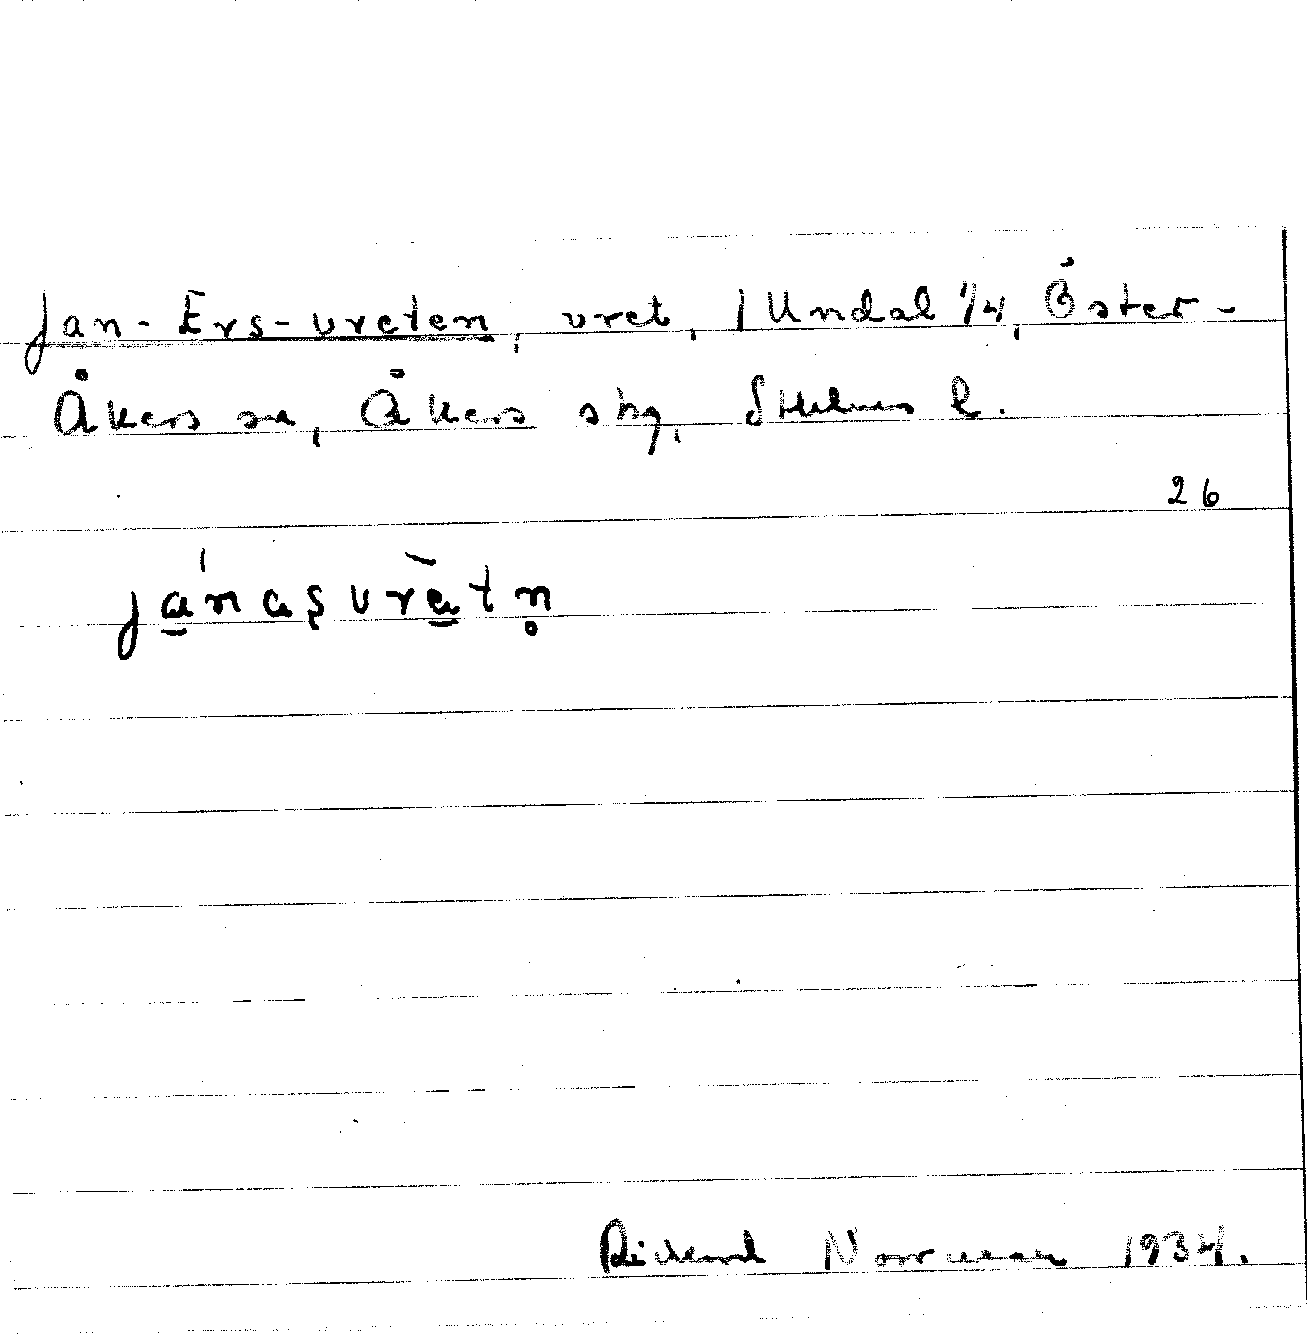 Jan-Ers-vreten, vret, 1 Undal 1/4, Öster-
Åkers sn, Åkers skg, Sthlms l.
26
jánas̩vrètn̥
Rickard Norrman 1934.